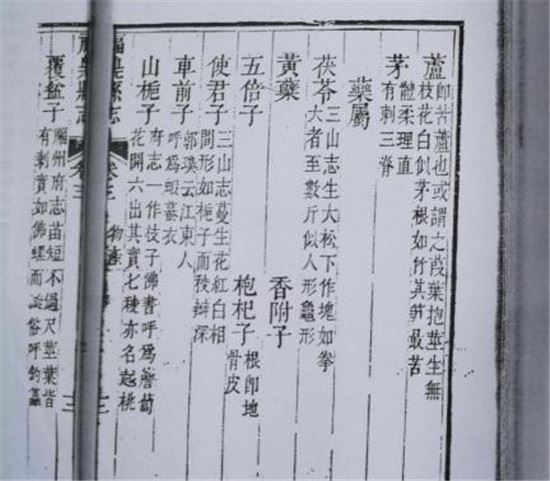 蘆 即苦蘆也或謂之葭葉抱莖生無
枝花白似茅根如竹其笋最苦
茅 體柔理直
有刺三脊
藥屬
茯苓 三山志生大松下作塊如拳
大者至數斤似人形龜形
黃蘗 香附子
五倍子 枸杞子 根即地
骨皮
使君子 三山志蔓生花紅白相
間形如梔子而稜瓣深
車前子 郭璞云江東人
呼爲蝦蟇衣
山梔子 府志一作枝子佛書呼爲薝蔔
花開六出其實七稜亦名越桃
福鼎縣志 卷三 物產
福鼎縣志 卷三
覆盆子 福州府志苗短不過尺莖葉皆
有刺實如佛螺而 俗呼